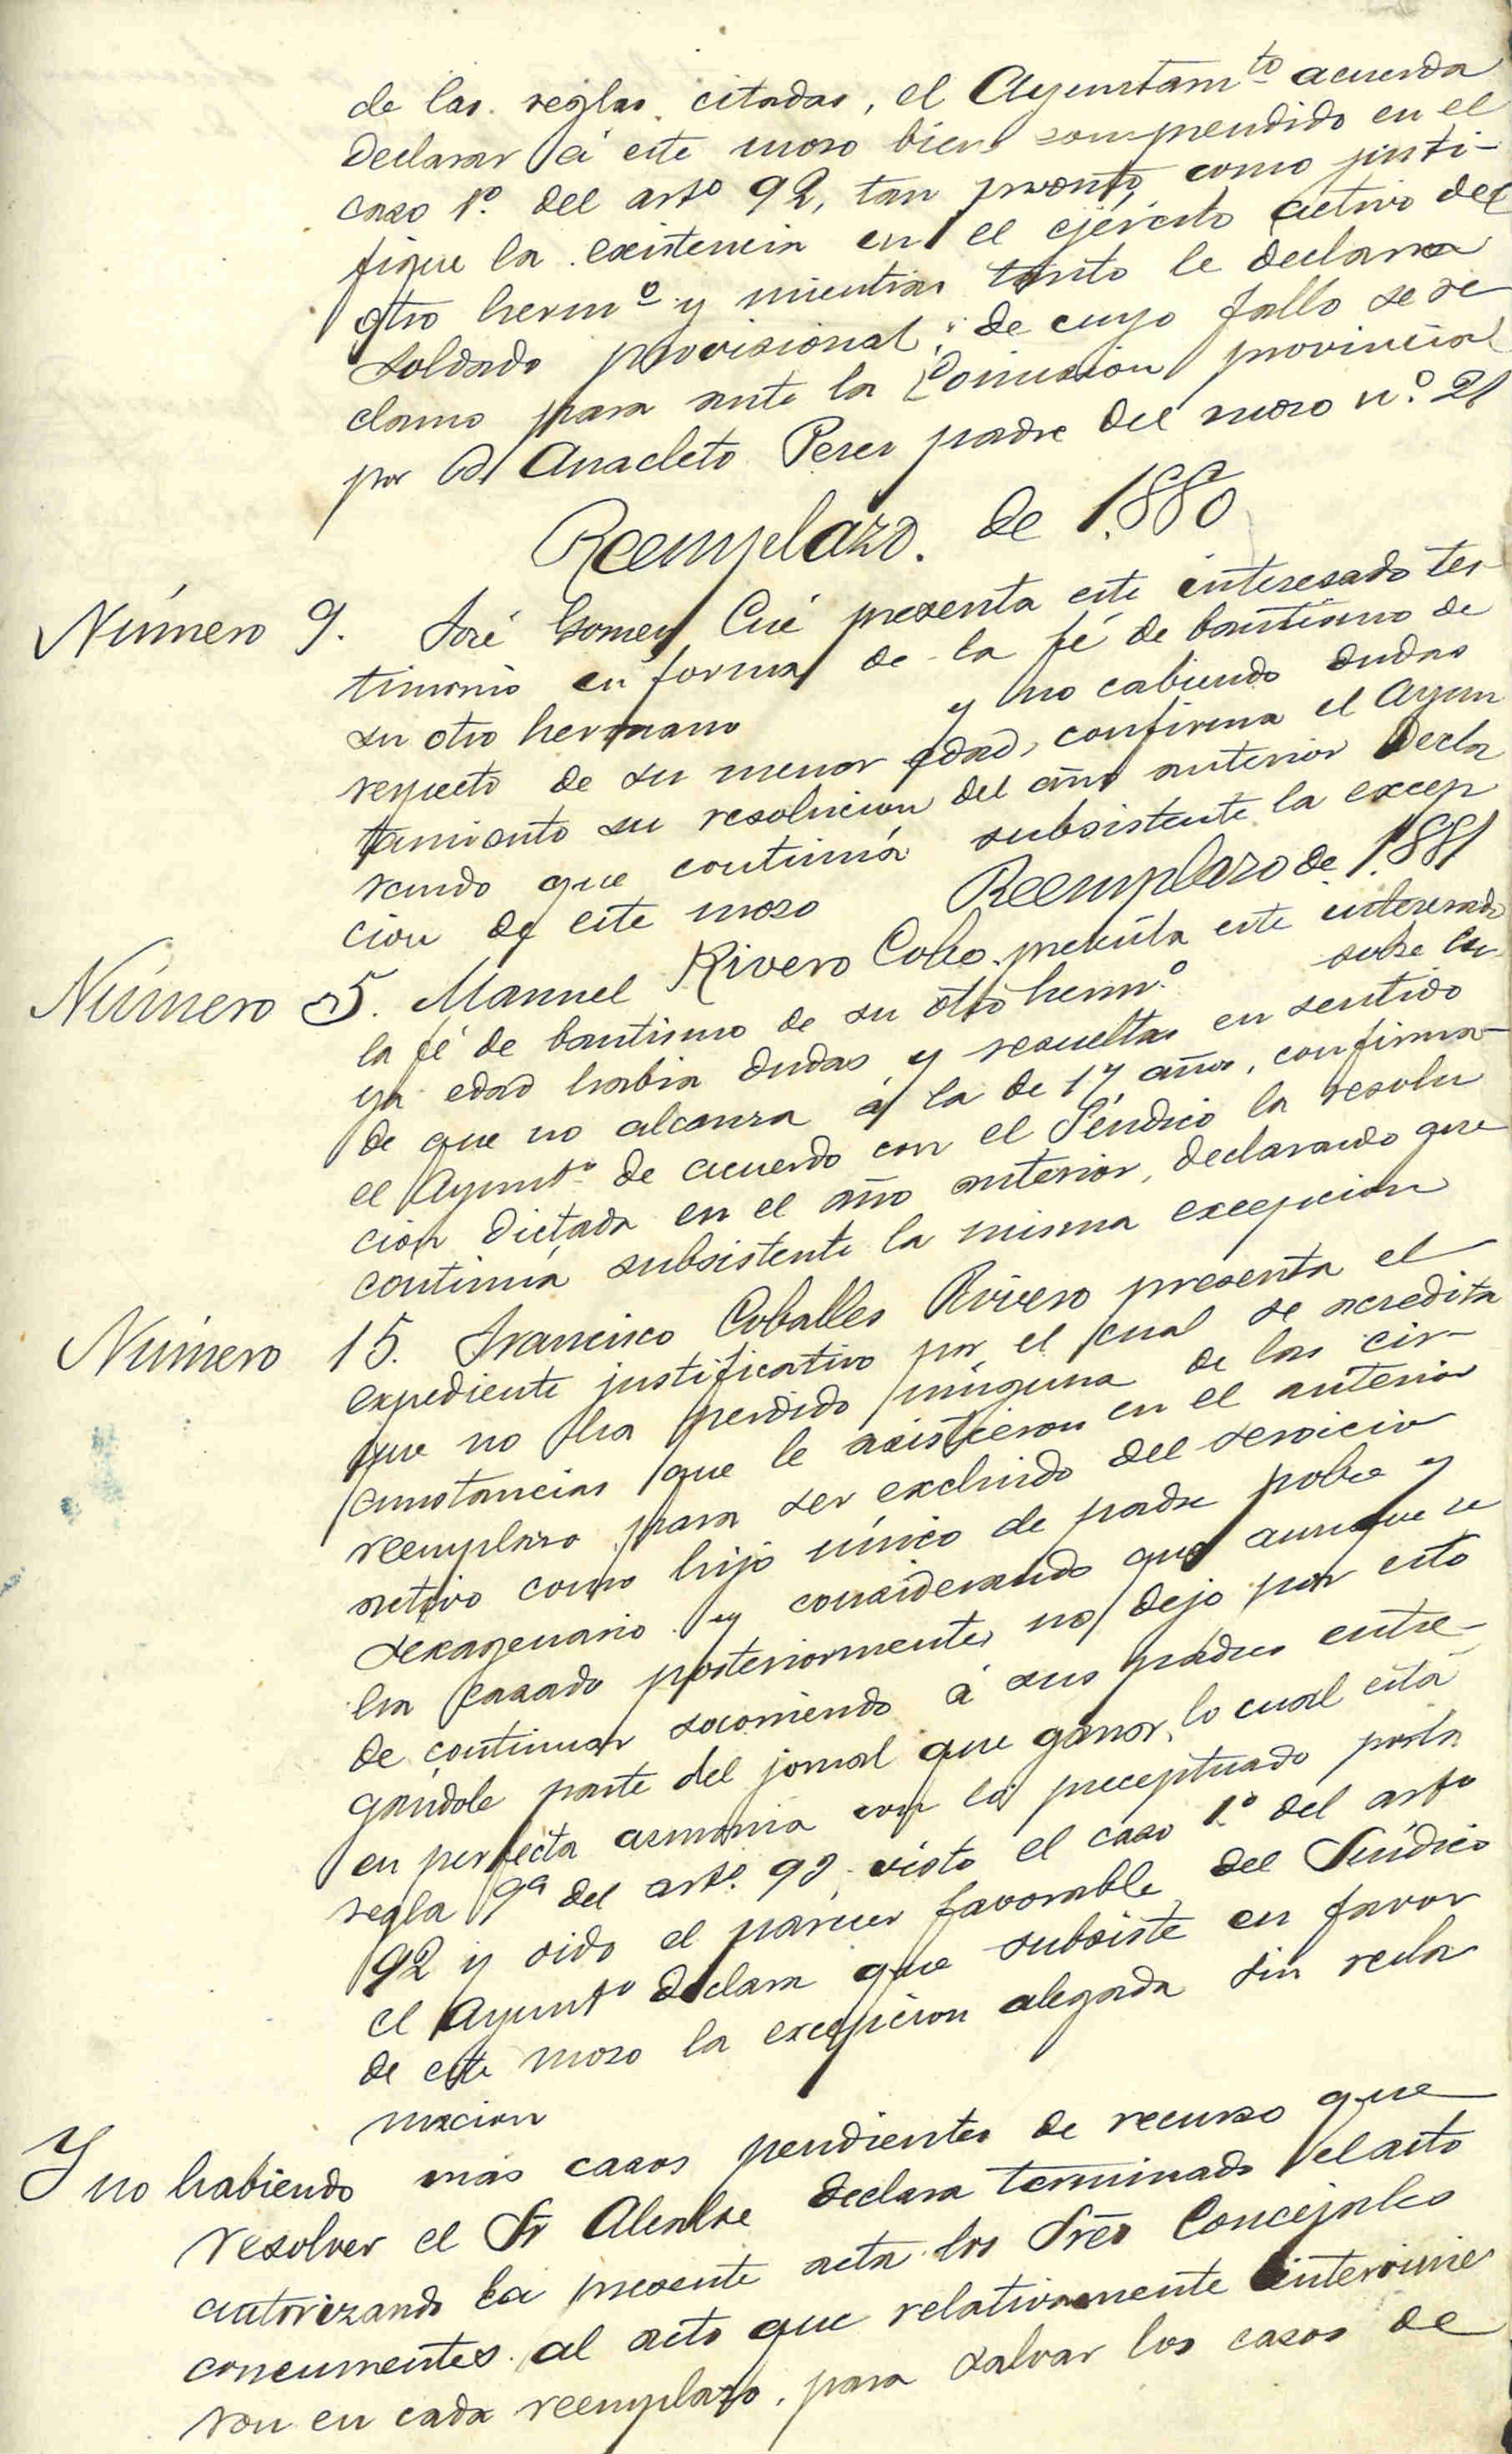 de las reglas citadas, el Ayuntamto acuerda
declarar á este moso bien comprendido en el
caso 1º. del artº 92, tan pronto, como justi-
fique la existencia en el ejército activo del
otro hermº y mientras tanto le declara
soldado provisional; de cuyo fallo se re
clamo para ante la Comision provincial
por D. Anacleto Perez padre del moso nº. 21
Reemplazo. de 1.880
Número 9. José Gomez Cué presenta este interesado tes
timonio en forma de la fé de bautismo de
su otro hermano y no cabiendo dudas
respecto de su menor edad, confirma el Ayun
tamiento su resolucion del año anterior decla
rando que continúa subsistente la excep
cion de este moso Reemplazo de 1.881
Número 5. Manuel Rivero Cobo. presenta este interesado
la fé de bautismo de su otro hermº. sobre cu
ya edad habia dudas y resueltas en sentido
de que no alcanza á la de 17 años, confirma
el Ayuntº de acuerdo con el Síndico la resolu
cion dictada en el año anterior, declarando que
continúa subsistente la misma excepcion
Número 15. Francisco Coballes Rivero presenta el
expediente justificativo por el cual se acredita
que no ha perdido ninguna de las cir-
cunstancias que le asistieron en el anterior
reemplazo para ser excluido del servicio
activo como hijo único de padre pobre y
sexagenario y considerando que aunque se
ha casado posteriormente, no dejo por esto
de continuar socorriendo á sus padres entre-
gándole parte del jornal que ganar, lo cual está
en perfecta armonia con lo preceptuado por la
regla 9ª del artº. 93 visto el caso 1º del artº
92 y oido el parecer favorable del Síndico
el Ayuntº declara que subsiste en favor
de este moso la excepcion alegada sin recla
macion
Y no habiendo más casos pendientes de recurso que
resolver el Sr Alcalde declara terminado el acto
autorizando la presente acta los Sres Concejales
concurrentes al acto que relativamente intervinie
ron en cada reemplazo, para salvar los casos de